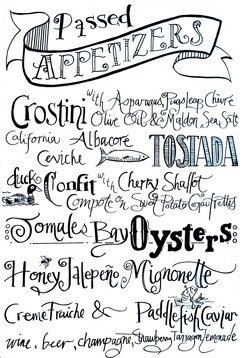 Passed
APPETIZERS
Crostini with Asparagus, Pugs leap Chevre
Olive Oil & Maldon Sea Salt
California Albacore
Ceviche TOSTADA
duck Confit with Cherry Shallot
Compote on Sweet Potato Gaufrettes
Tomales Bay Oysters
Honey Jalepeño Mignonette
Creme Fraiche & Paddlefish Caviar
wine, beer, champagne, Strawberry Tarragon lemonade